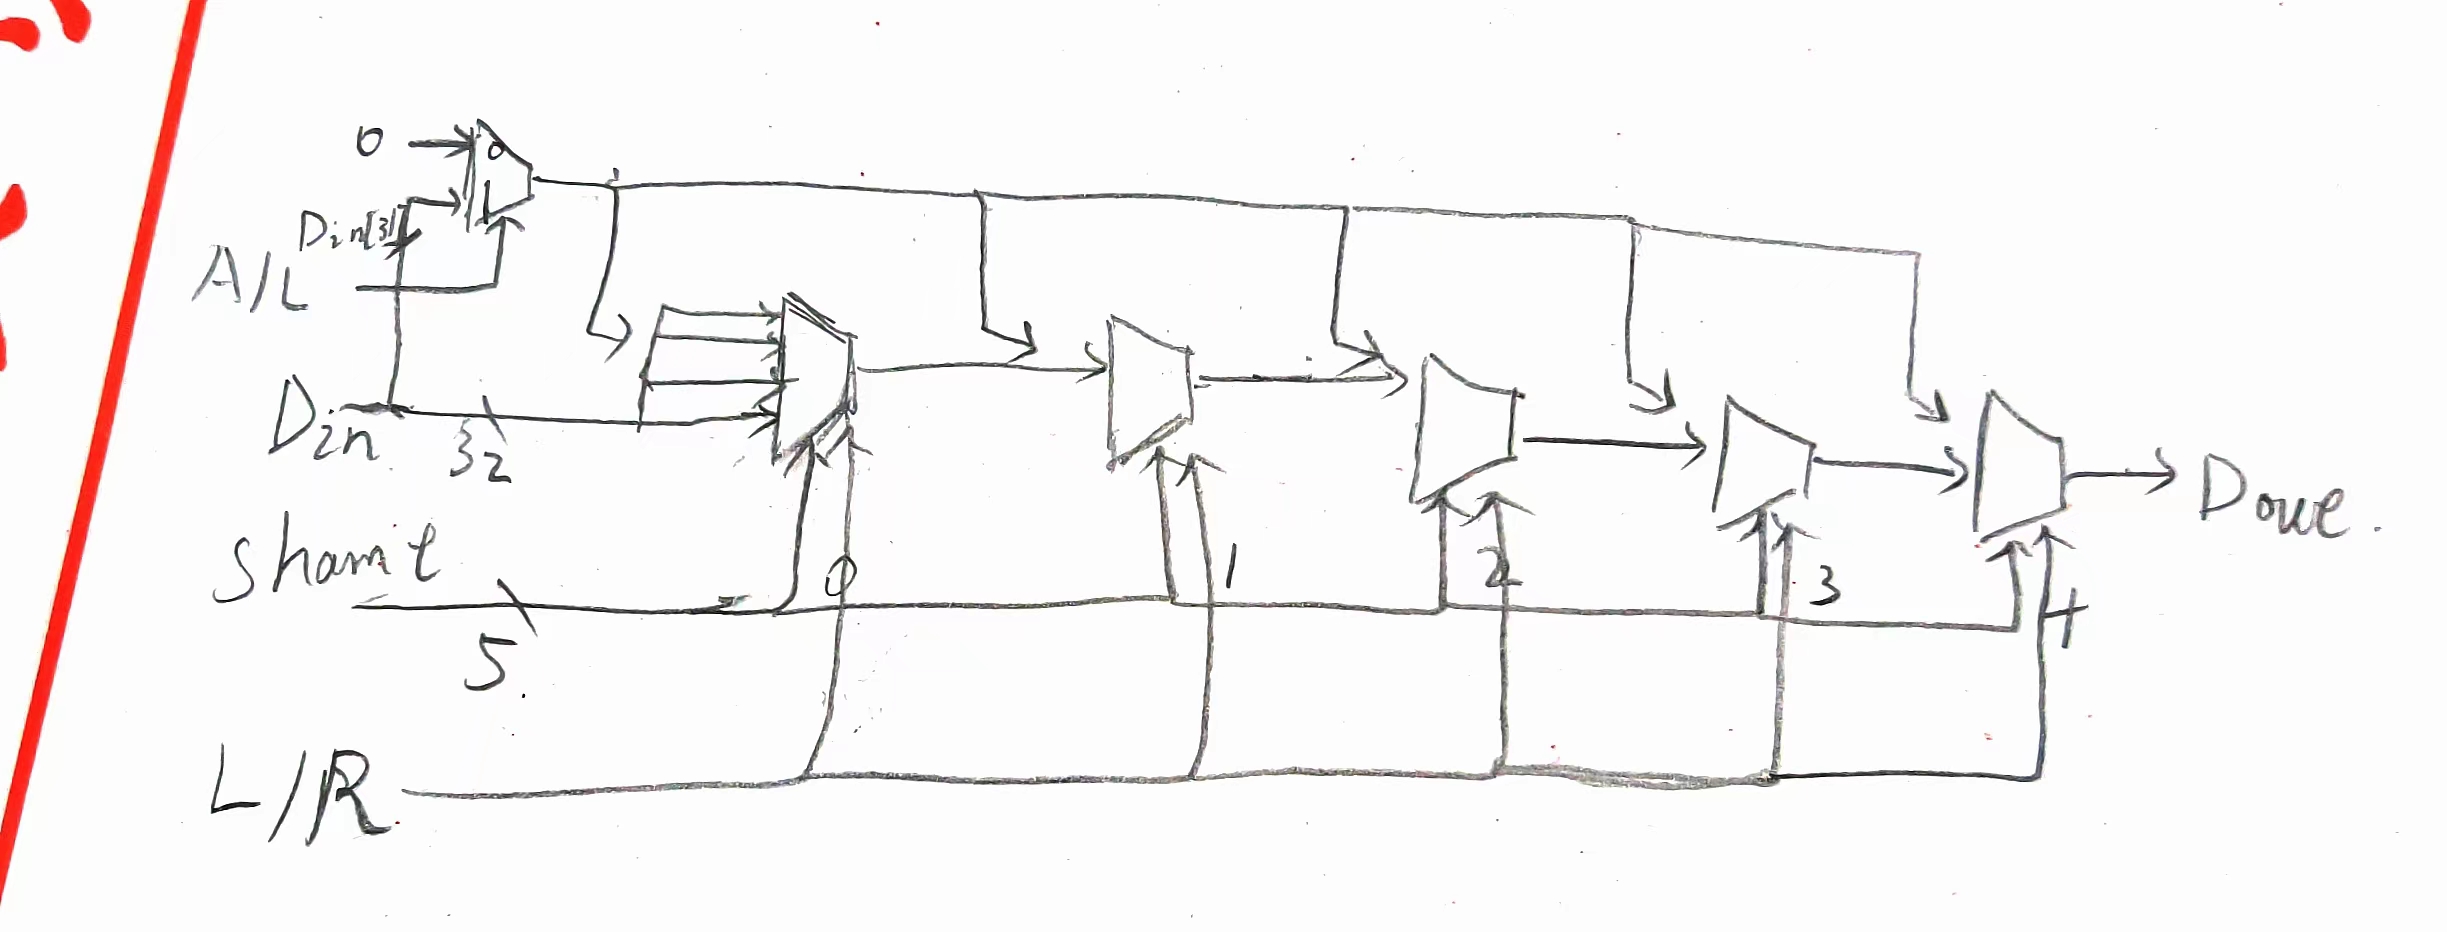 0
0
1
Din[31]
A/L
Din
32
shamt
0
1
2
3
4
5
Dout.
L/R